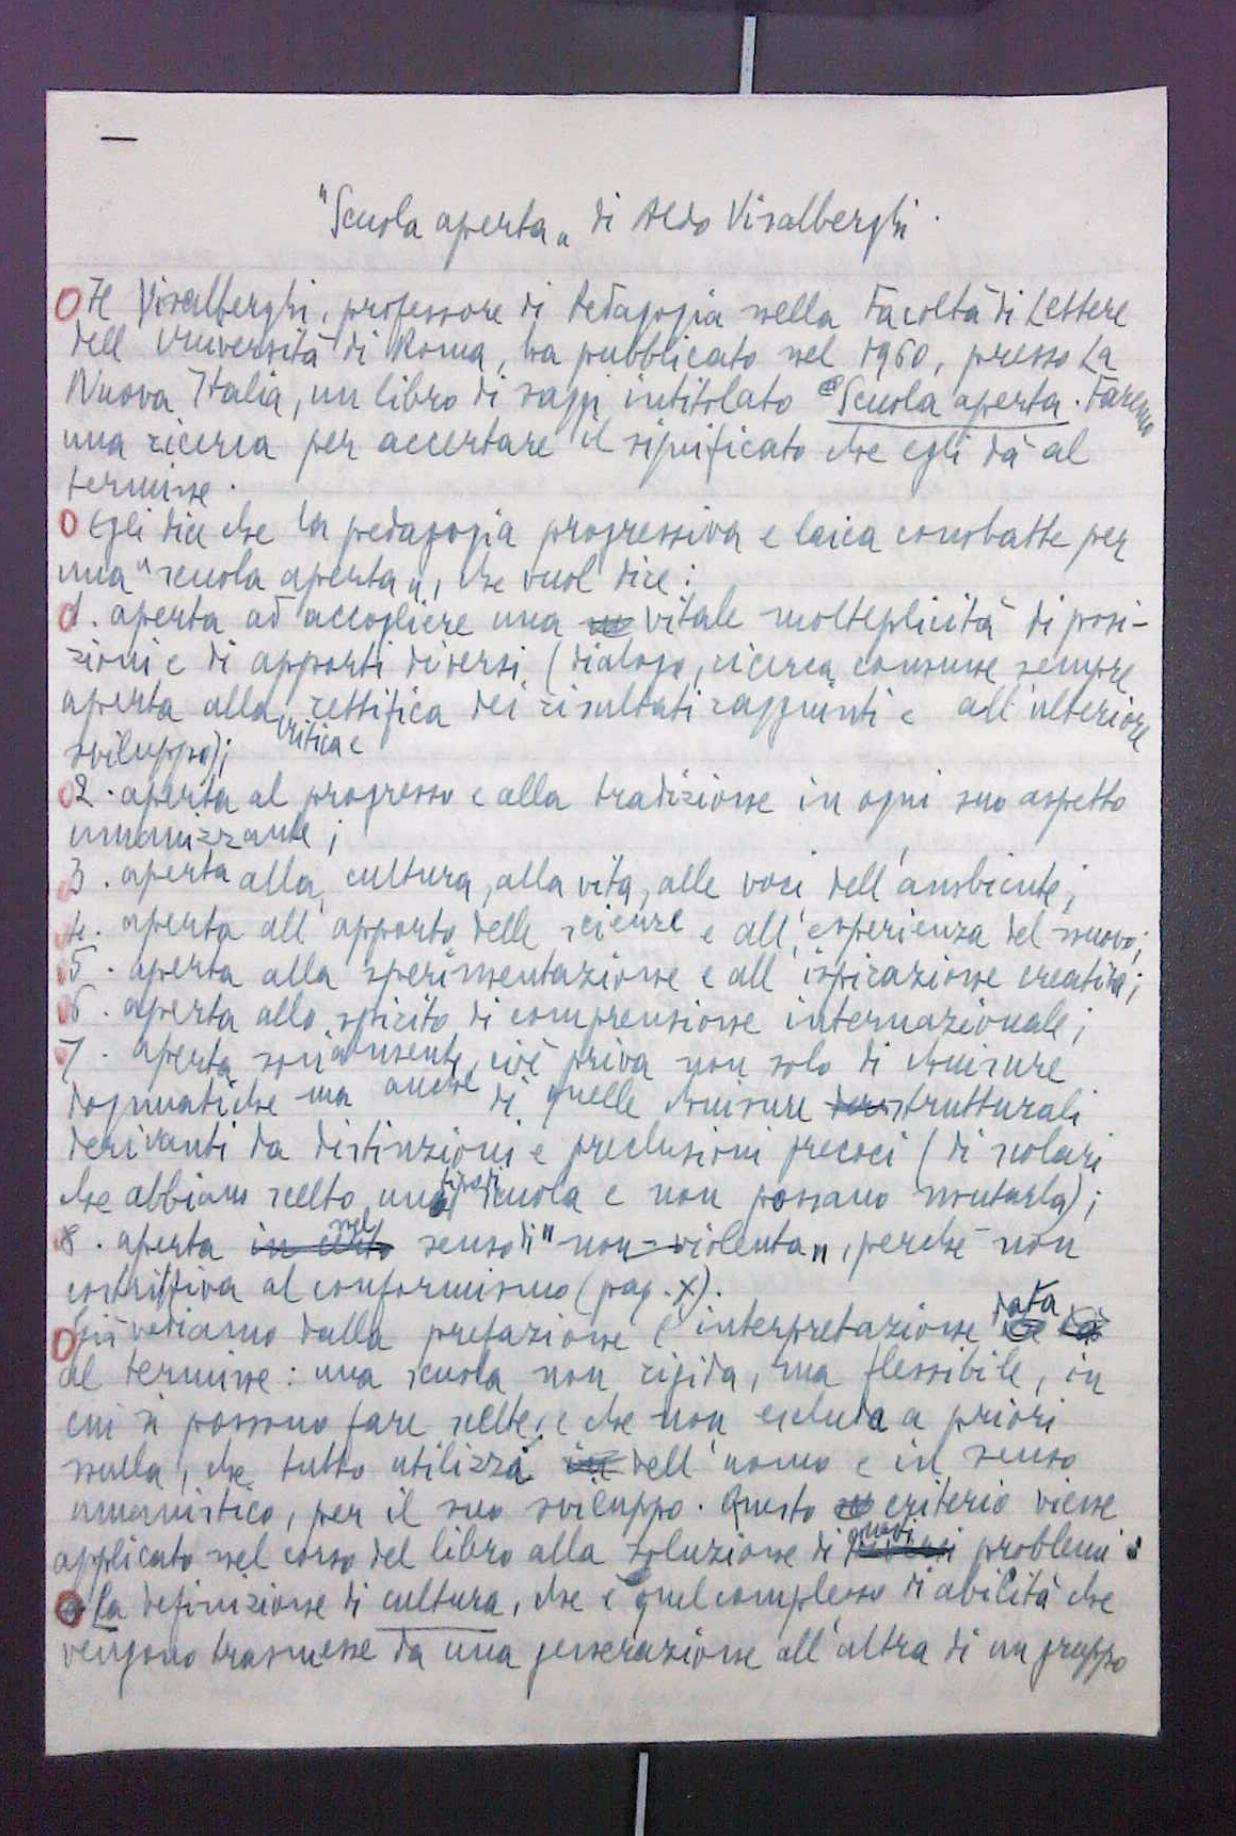 "Scuola aperta" di Aldo Visalberghi.
Il Visalberghi, professore di Pedagogia nella Facoltà di Lettere
dell'Università di Roma, ha pubblicato nel 1960, presso La
Nuova Italia, un libro di saggi intitolato Scuola aperta. Faremo
una ricerca per accertare il significato che egli dà al
termine.
Egli dice che la pedagogia progressiva e laica combatte per
una "scuola aperta", che vuol dire:
1. aperta ad accogliere una vitale molteplicità di posi-
zioni e di apporti diversi (dialogo, ricerca comune sempre
aperta alla critica e rettifica dei risultati raggiunti e all'ulteriore
sviluppo);
2. aperta al progresso e alla tradizione in ogni suo aspetto
umanizzante;
3. aperta alla cultura, alla vita, alle voci dell'ambiente;
4. aperta all'apporto delle scienze e all'esperienza del nuovo;
5. aperta alla sperimentazione e all'ispirazione creativa;
6. aperta allo spirito di comprensione internazionale;
7. aperta socialmente, cioè priva non solo di chiusure
dogmatiche ma anche di quelle chiusure strutturali
derivanti da distinzioni e preclusioni precoci (di scolari
che abbiano scelto un tipo di scuola e non possano mutarla);
8. aperta nel senso di "non-violenta", perché non
costrittiva al conformismo (pag. X).
Già vediamo dalla prefazione l'interpretazione data
al termine: una scuola non rigida, ma flessibile, in
cui si possono fare scelte, e che non escluda a priori
nulla, che tutto utilizzi dell'uomo e in senso
umanistico, per il suo sviluppo. Questo criterio viene
applicato nel corso del libro alla soluzione di problemi:
La definizione di cultura, che è quel complesso di abilità che
vengono trasmesse da una generazione all'altra di un gruppo